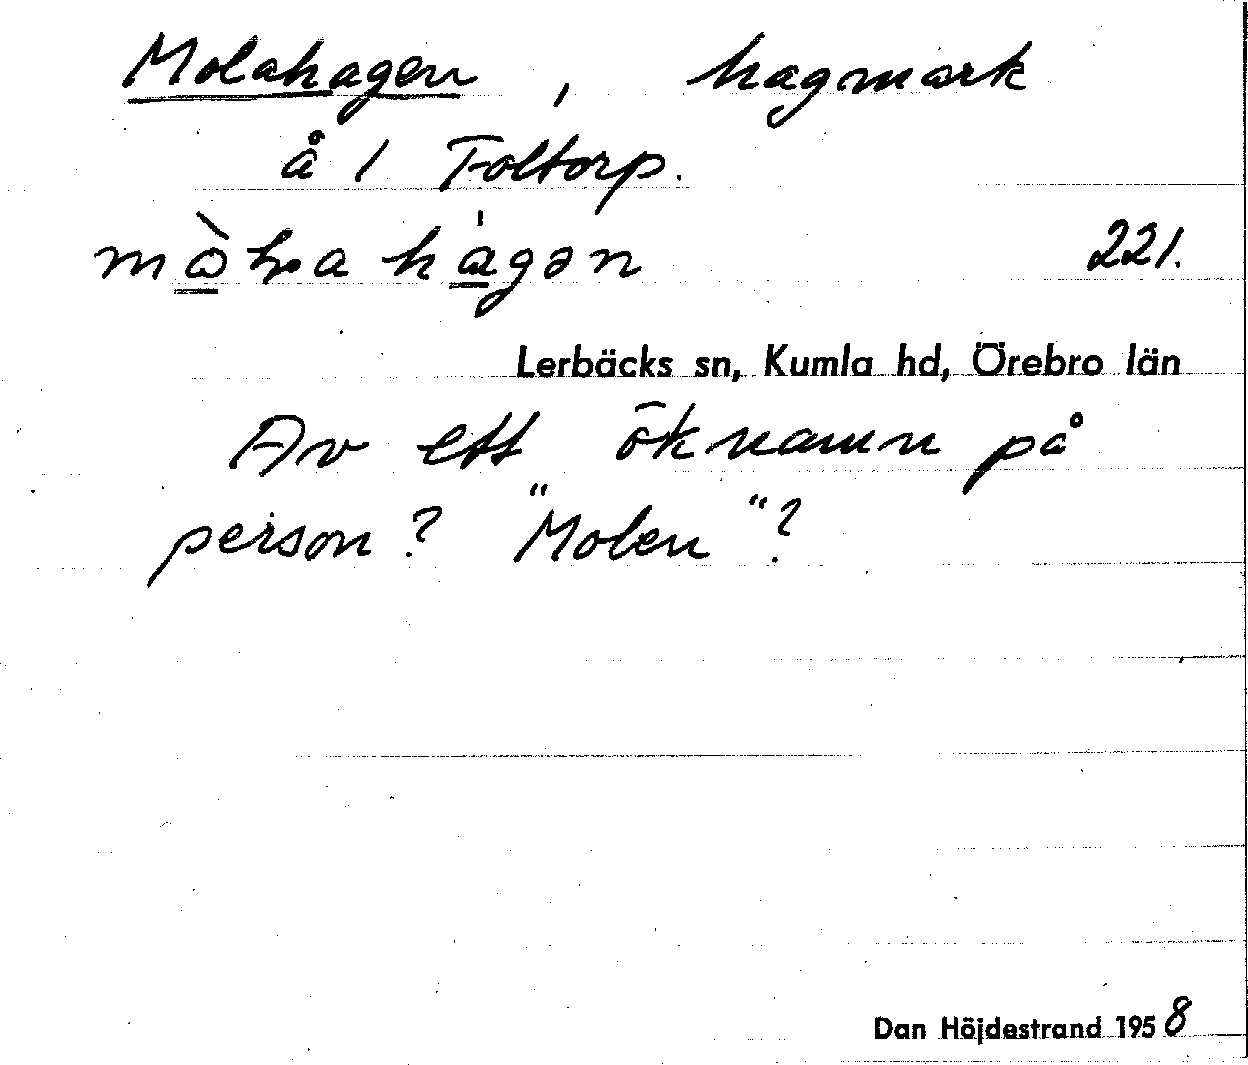 Molahagen, hagmark
å 1 Foltorp.
221.
Lerbäcks sn, Kumla hd, Örebro län
Av ett öknamn på
person? "Molen"?
Dan Höjdestrand 1958